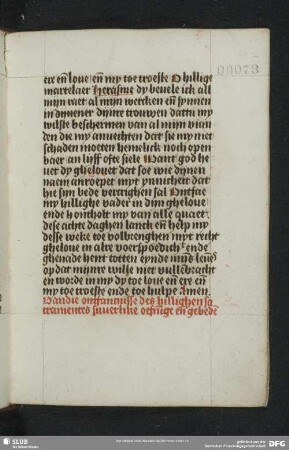 00073
ere en̄ loue en̄ my toe troeste O hillige
mertelaer Herasme dy beuele ick all
mijn raet al mijn wercken en̄ synnen
in dynener dynre trouwen dattu my
wilste beschermen van al mijn vian
den die my anuechten dat sie my niet
schaden moeten hemelick noch open
baer an lijff ofte siele Want god he
uet dy ghelouet dat soe wie dynen
naem anroepet myt ynnicheit dat
hie sijn bede vercrighen sal Ontfae
my hillighe vader in dijn gheloue
ende hontholt my van alle quaet
dese achte daghen lanck en̄ help my
desse weke toe volbrenghen myt recht
gheloue in alre voerspoedich͛ ende
ghenade hent totten eynde mijns leue͛s
op dat mijnre wille niet vullebracht
en worde in my dy toe loue en̄ ere en̄
my toe troeste ende toe hulpe Amen
Vandie ontfancnisse des hillighen sa
cramentes suuerlike oefnīge en̄ gebedē
SLUB
Wir führen Wissen.
gefördert von der
Deutschen Forschungsgemeinschaft
DFG